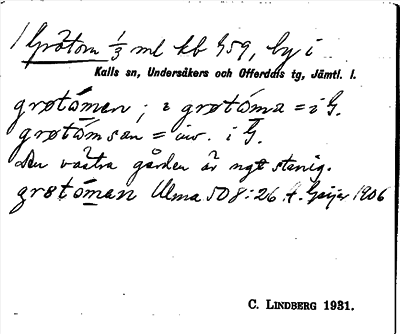 1 Grötom 1/3 ml kb 959, by i
Kalls sn, Undersåkers och Offerdals tg, Jämtl. l.
grøtó̱men; i grøtó̱ma = i G.
grøtómsan = inv. i G.
Den västra gården är ngt stenig.
grøtóman Ulma 508:26 H. Geijer 1906
C. LINDBERG 1931.